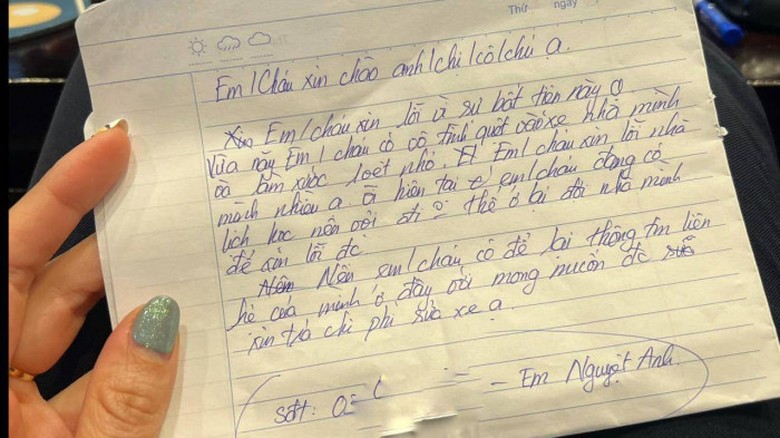 Thứ ngày
Em/Cháu xin chào anh/chị/cô/chú ạ.
Xin Em/cháu xin lỗi vì sự bất tiện này ạ
Vừa nãy Em/cháu có vô tình quệt vào xe nhà mình
và làm xước loẹt nhỏ. Em/cháu xin lỗi nhà
mình nhiều ạ. Vì hiện tại em/cháu đang có
lịch học nên vội đi k thể ở lại đợi nhà mình
để xin lỗi đc
Nêm Nên em/cháu có để lại thông tin liên
hệ của mình ở đây với mong muốn đc
xin trả chi phí sửa xe ạ.
sđt: 0
– Em Nguyệt Anh.